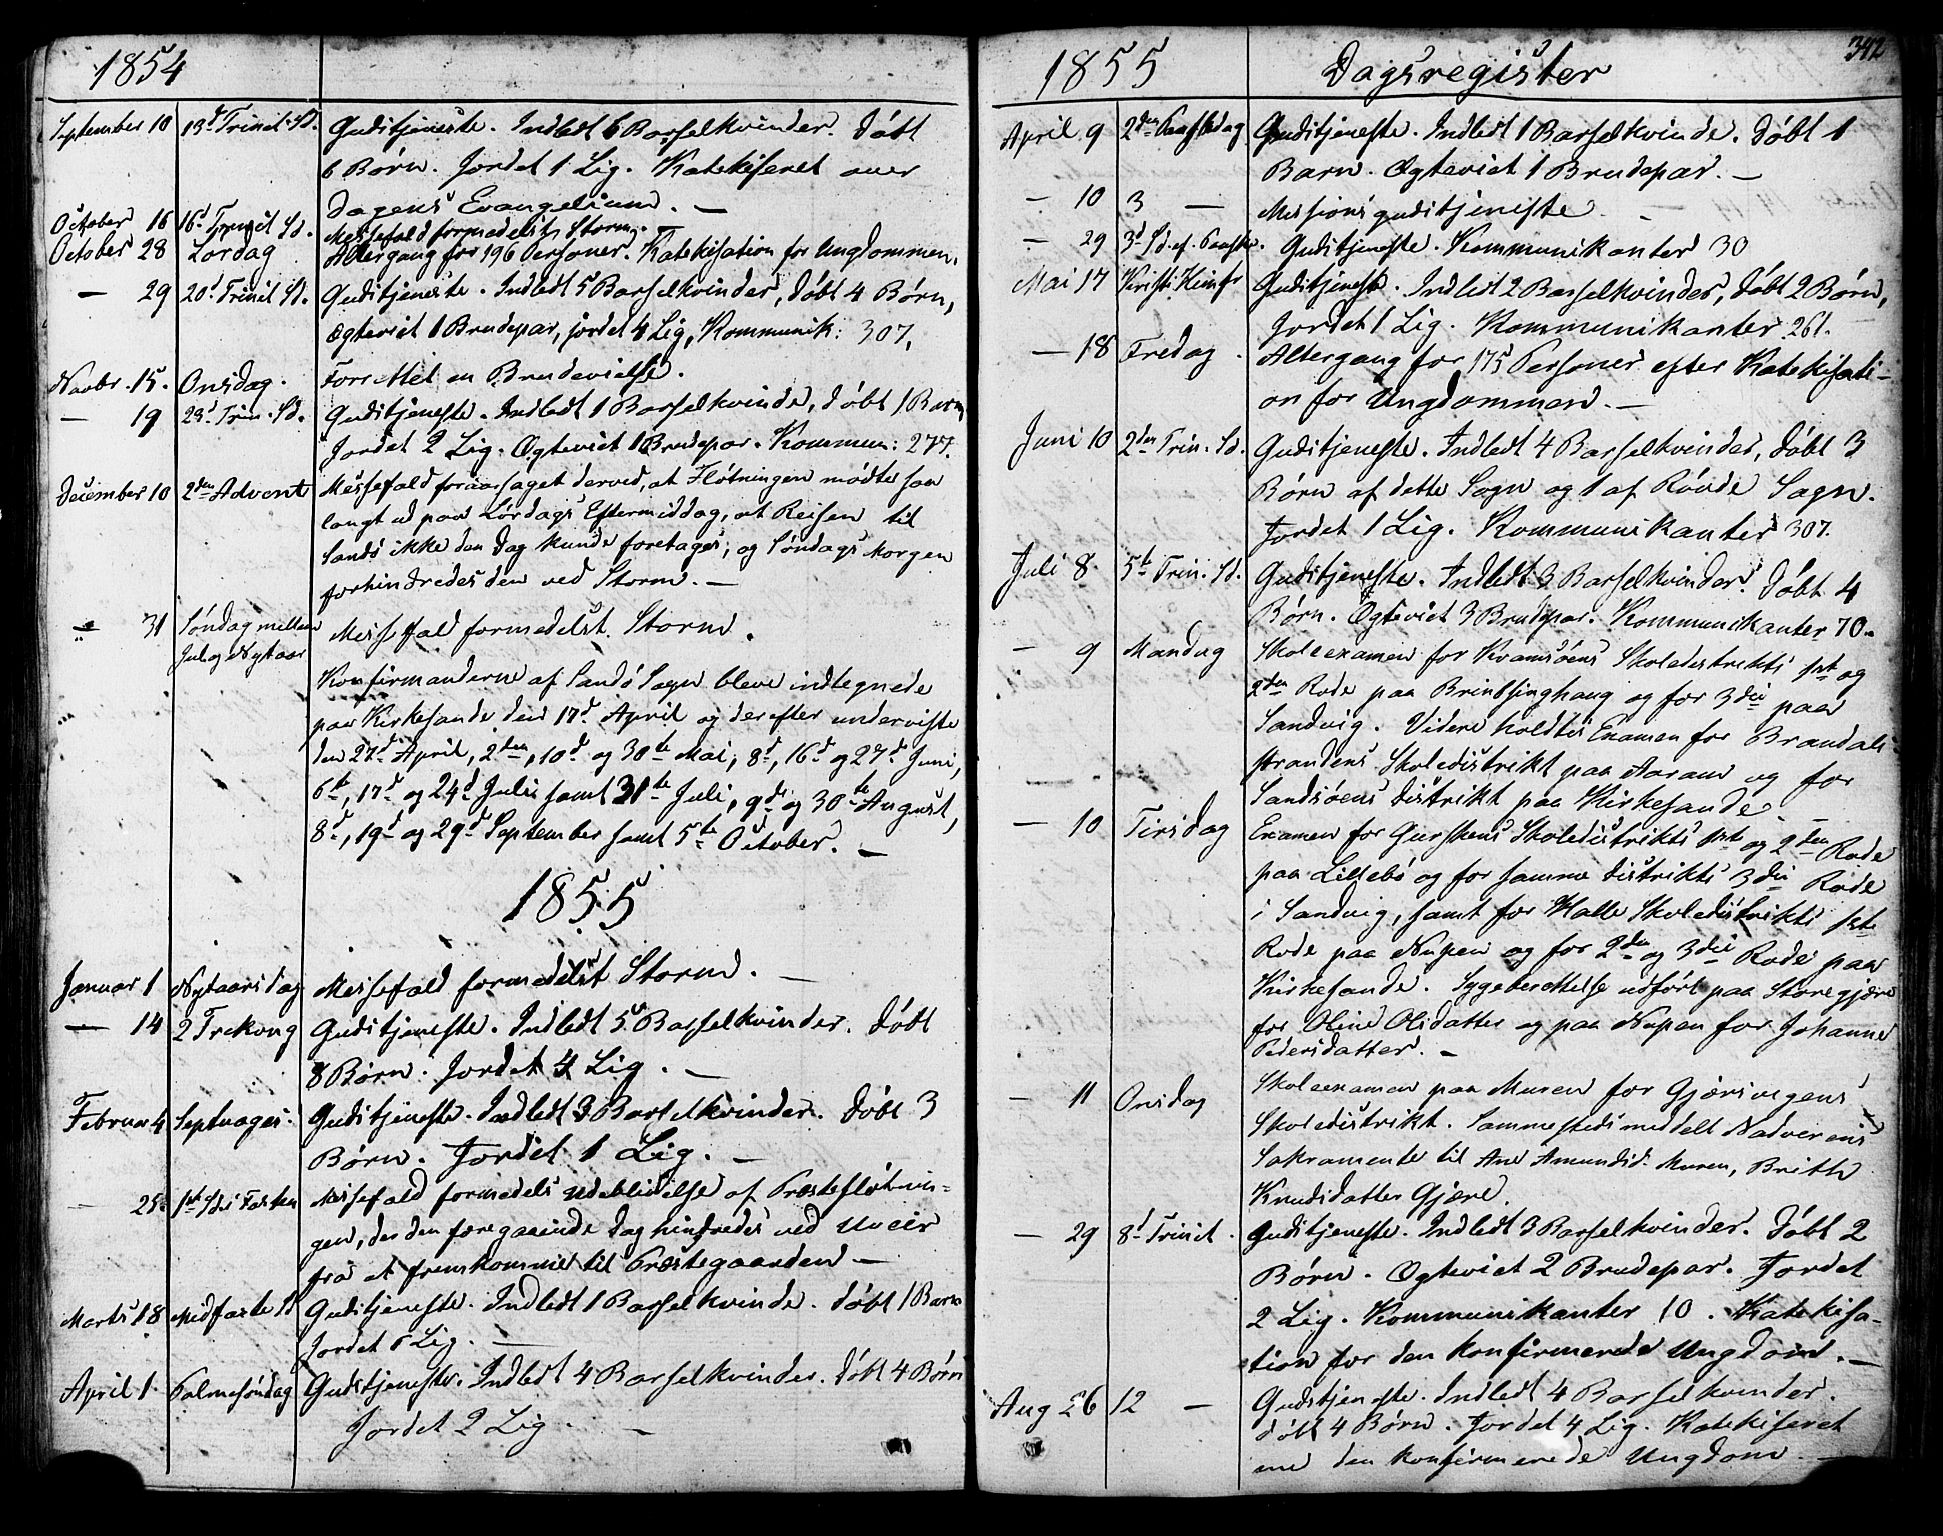 1854
September 10 13d Trinit. Sd. Gudstjeneste. Indledt 6 Barselkvinder. Døbt
6 Børn. Jordet 1 Lig. Katekiseret over
Dagens Evangelium. —
October 16 16d Trinit Sd. Messefald formedelst Storm. —
October 28 Lørdag Altergang for 196 Personer. Katekisation for Ungdommen.
— 29 20d Trinit Sd. Gudstjeneste. Indledt 5 Barselkvinder, døbt 4 Børn,
ægteviet 1 Brudepar, jordet 4 Lig, Kommunik: 307.
Novbr. 15. Onsdag. Forrettet en Brudevielse.
— 19 23d Trin. Sd. Gudstjeneste. Indledt 1 Barselkvinde, døbt 1 Barn
Jordet 2 Lig. Ægteviet 1 Brudepar. Kommun: 277.
December 10 2den Advent Messefald foraarsaget derved, at Fløtningen mødte saa
langt ud paa Lørdags Eftermiddag, at Reisen til
Sandø ikke den Dag kunde foretages, og Søndags Morgen
forhindredes den ved Storm. —
— 31 Søndag mellem
Jul og Nytaar Messefald formedelst Storm.
Konfirmanderne af Sandø Sogn bleve indtegnede
paa Kirkesande den 17d April og derefter underviste
den 27d April, 2den, 10d og 30te Mai, 8d, 16d og 27d Juni,
6te, 17d og 24d Juli samt 31te Juli, 9de og 30te August,
8d, 19d og 29d September samt 5te October. —
1855
Januar 1 Nytaarsdag Messefald formedelst Storm. —
— 14 2 Trekong Gudstjeneste. Indledt 5 Barselkvinder. Døbt
8 Børn. Jordet 4 Lig. —
Februar 4 Septuages. Gudstjeneste. Indledt 3 Barselkvinder. Døbt 3
Børn. Jordet 1 Lig. —
— 25. 1st Sd i Fasten Messefald formedels Udeblivelse af Præstefløtnin-
gen, der den foregaaende Dag hindredes ved Uveir
fra at fremkomme til Præstegaarden —
Marts 18 Midfaste Sd Gudstjeneste. Indledt 1 Barselkvinde. Døbt 1 Barn
Jordet 6 Lig. —
April 1. Palmesøndag Gudstjeneste. Indledt 4 Barselkvinder. Døbt 4 Børn
Jordet 2 Lig. —
1855 Dagsregister 342
April 9 2den Paaskedag Gudstjeneste. Indledt 1 Barselkvinde. Døbt 1
Barn. Ægteviet 1 Brudepar. —
— 10 3 — Missionsgudstjeneste. —
— 29 3d Sd. ef. Paaske. Gudstjeneste. Kommunikanter 30
Mai 17 Kristi Himfr Gudstjeneste. Indledt 2 Barselkvinder, Døbt 2 Børn,
Jordet 1 Lig. Kommunikanter 261.
— 18 Fredag. Altergang for 175 Personer efter Katekisati-
on for Ungdommen. —
Juni 10 2den Trin. Sd. Gudstjeneste. Indledt 4 Barselkvinder, Døbt 3
Børn af dette Sogn og 1 af Røvde Sogn.
Jordet 1 Lig. Kommunikanter 307.
Juli 8. 5te Trin. Sd. Gudstjeneste. Indledt 3 Barselkvinder. Døbt 4
Børn. Ægteviet 3 Brudepar. Kommunikanter 70.
— 9 Mandag Skoleexamen for Kvamsøens Skoledistrikts 1ste og
2den Rode paa Bringsinghaug og for 3die paa
Sandvig. Videre holdtes Examen for Brandals-
strandens Skoledistrikt paa Aaram og for
Sandsøens Distrikt paa Kirkesande. —
— 10 Tirsdag Examen for Gurskens Skoledistrikts 1ste og 2den Rode
paa Lillebø og for samme Distrikts 3die Rode
i Sandvig, samt for Halle Skoledistrikts 1ste
Rode paa Nupen og for 2den og 3die Rode paa
Kirkesande. Sygeberettelse udført paa Storegjære
for Oline Olsdatter og paa Nupen for Johanne
Pedersdatter. —
— 11 Onsdag Skoleexamen paa Muren for Gjærsvegens
Skoledistrikt. Sammesteds meddelt Nadverens
Sakramente til Ane Amundsd. Muren, Brithe
Knudsdatter Gjære.
— 29 8d Trinit. Gudstjeneste. Indledt 3 Barselkvinder. Døbt 2
Børn. Ægteviet 2 Brudepar. Jordet
2 Lig. Kommunikanter 10. Katekisa-
tion for den konfirmerede Ungdom. —
Aug 26 12 — Gudstjeneste. Indledt 4 Barselkvinder.
døbt 4 Børn. Jordet 4 Lig. Katekiseret
med den konfirmerede Ungdom. —